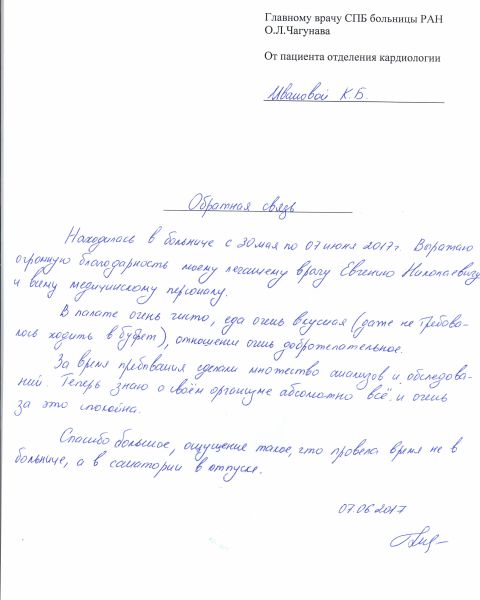 Главному врачу СПБ больницы РАН
О.Л.Чагунава
От пациента отделения кардиологии
Ивановой К.Б.
Обратная связь
Находилась в больнице с 30 мая по 07 июня 2017г. Выражаю
огромную благодарность моему лечащему врачу Евгению Николаевичу
и всему медицинскому персоналу.
В палате очень чисто, еда очень вкусная (даже не требова-
лось ходить в буфет), отношение очень доброжелательное.
За время пребывания сделали множество анализов и обследова-
ний. Теперь знаю о своём организме абсолютно всё и очень
за это спокойна.
Спасибо большое, ощущение такое, что провела время не в
больнице, а в санатории в отпуске.
07.06.2017